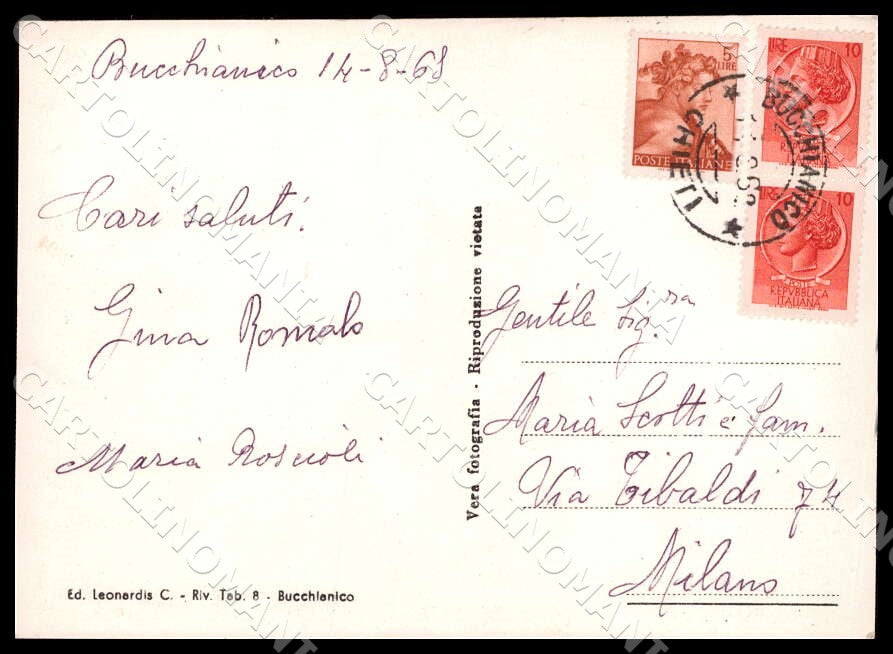 Bucchianico 14-8-68
Cari saluti.
Gina Romalo
Maria Roscioli
Ed. Leonardis C. - Riv. Tab. 8 - Bucchianico
Vera fotografia - Riproduzione vietata
5 LIRE
POSTE ITALIANE
LIRE 10
LIRE 10
REPVBBLICA
ITALIANA
BUCCHIANICO
CHIETI
Gentile Sig.ra
Maria Scotti e fam.
Via Tibaldi 74
Milano
CARTOLINOMANIA